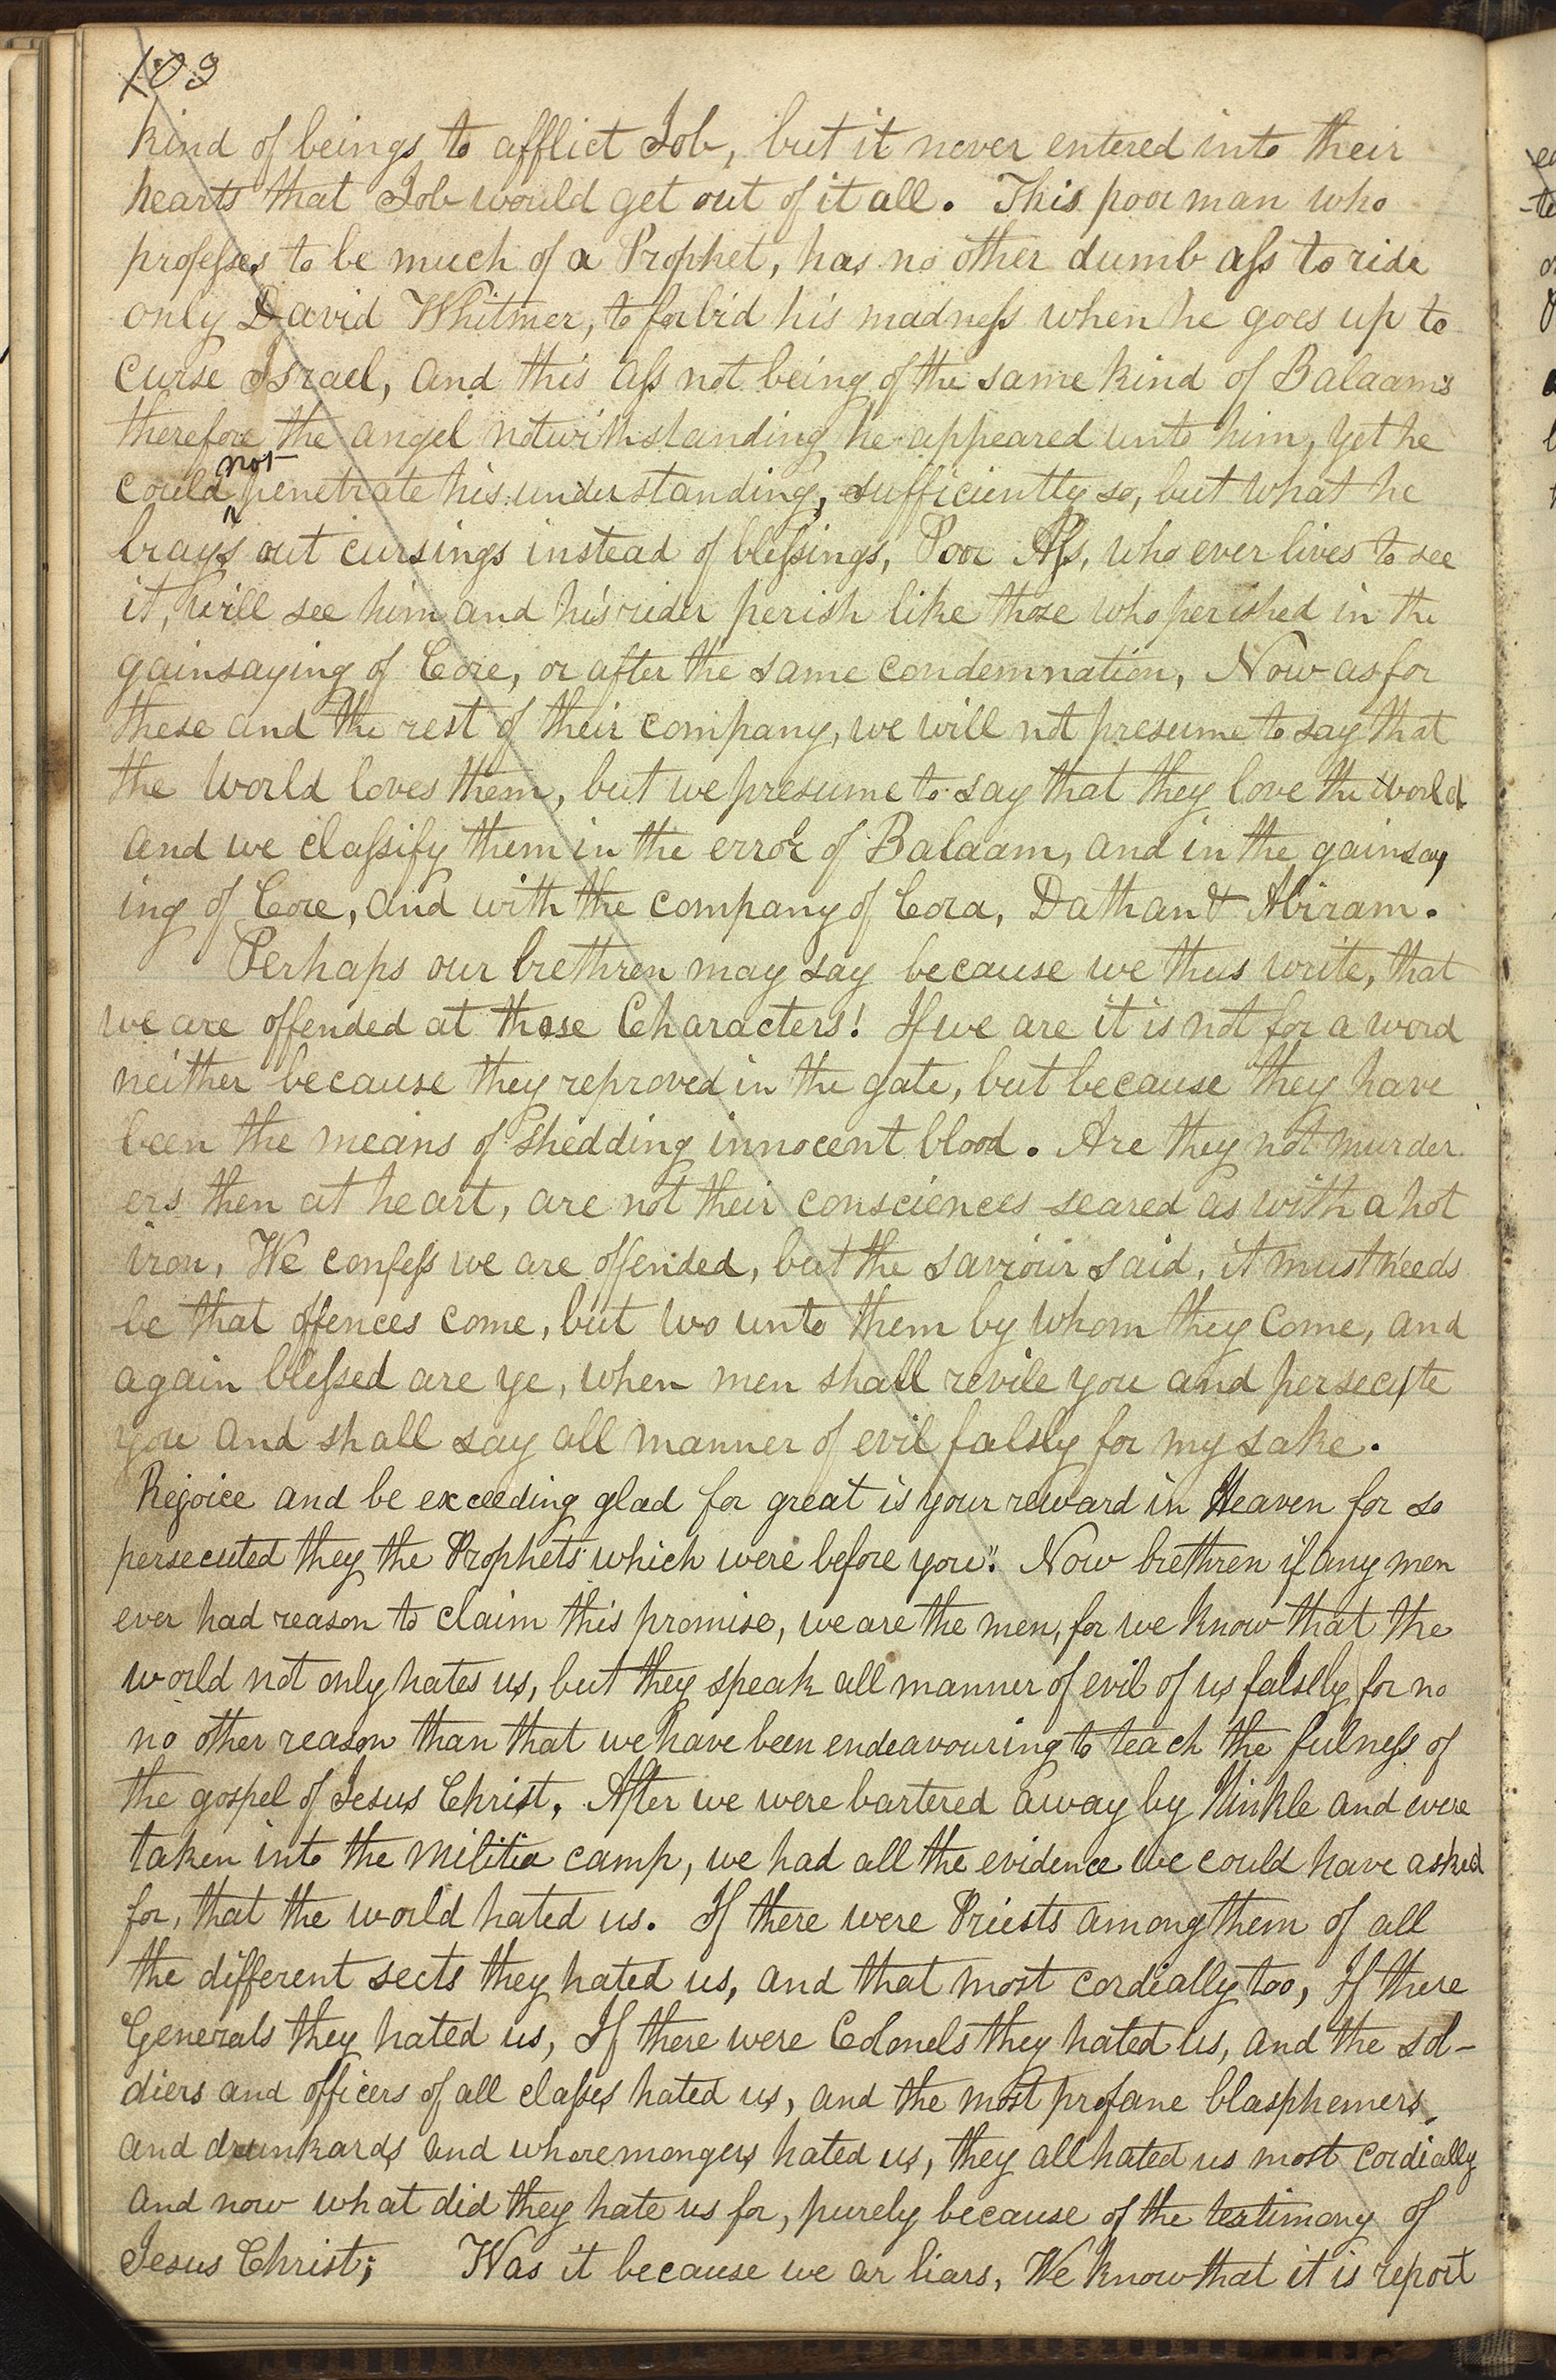 103
kind of beings to afflict Job, but it never entered into their
hearts that Job would get out of it all. This poor man who
professes to be much of a Prophet, has no other dumb ass to ride
only David Whitmer, to forbid his madness when he goes up to
curse Israel, and this ass not being of the same kind of Balaams
therefore the angel notwithstanding he appeared unto him, yet he
could not penetrate his understanding, sufficiently so, but what he
brays out cursings instead of blessings, Poor Ass, who ever lives to see
it, will see him and his rider perish like those who perished in the
gainsaying of Core, or after the same condemnation, Now as for
these and the rest of their company, we will not presume to say that
the world loves them, but we presume to say that they love the world
and we classify them in the error of Balaam, and in the gainsay
ing of Core, and with the company of Cora, Dathan & Abiram.
Perhaps our brethren may say because we thus write, that
we are offended at those Characters! If we are it is not for a word
neither because they reproved in the gate, but because they have
been the means of shedding innocent blood. Are they not murder
ers then at heart, are not their consciences seared as with a hot
iron, We confess we are offended, but the saviour said, it must needs
be that offences come, but wo unto them by whom they come, and
again blessed are ye, when men shall revile you and persecute
you and shall say all manner of evil falsly for my sake.
Rejoice and be exceeding glad for great is your reward in Heaven for so
persecuted they the Prophets which were before you". Now brethren if any men
ever had reason to claim this promise, we are the men, for we know that the
world not only hates us, but they speak all manner of evil of us falsely for no
no other reason than that we have been endeavouring to teach the fulness of
the gospel of Jesus Christ, After we were bartered away by Hinkle and were
taken into the militia camp, we had all the evidence we could have asked
for, that the world hated us. If there were Priests among them of all
the different sects they hated us, and that most cordially too, If there
Generals they hated us, If there were Colonels they hated us, and the sol-
diers and officers of all classes hated us, and the most profane blasphemers,
and drunkards and whoremongers hated us, they all hated us most cordially
and now what did they hate us for, purely because of the testimony of
Jesus Christ; Was it because we ar liars, We know that it is report